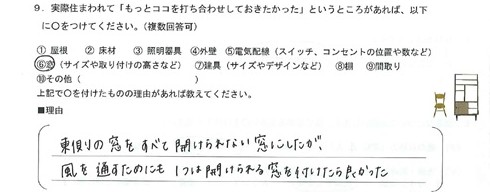 ９．実際住まわれて「もっとココを打ち合わせしておきたかった」というところがあれば、以下
に〇をつけてください。（複数回答可）
① 屋根　② 床材　③ 照明器具　④外壁　⑤電気配線（スイッチ、コンセントの位置や数など）
⑥窓（サイズや取り付けの高さなど）　⑦建具（サイズやデザインなど）　⑧棚　⑨間取り
⑩その他（　　　　　　　　　　）
上記で〇を付けたものの理由があれば教えてください。
■理由
東側の窓をすべて開けられない窓にしたが、
風を通すためにも１つは開けられる窓を付けたら良かった